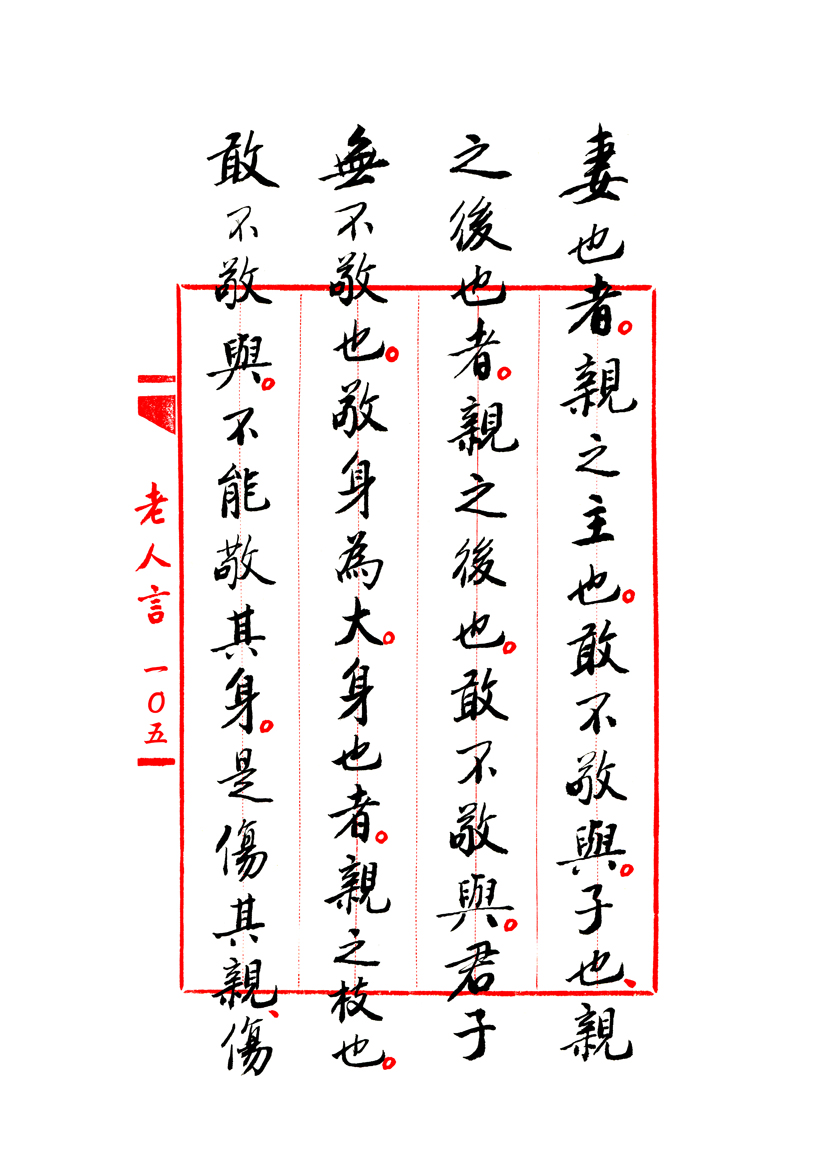 妻也者。親之主也。敢不敬與。子也、親
之後也者。親之後也。敢不敬與。君子
無不敬也。敬身為大。身也者。親之枝也。
敢不敬與。不能敬其身。是傷其親、傷
老人言 一〇五